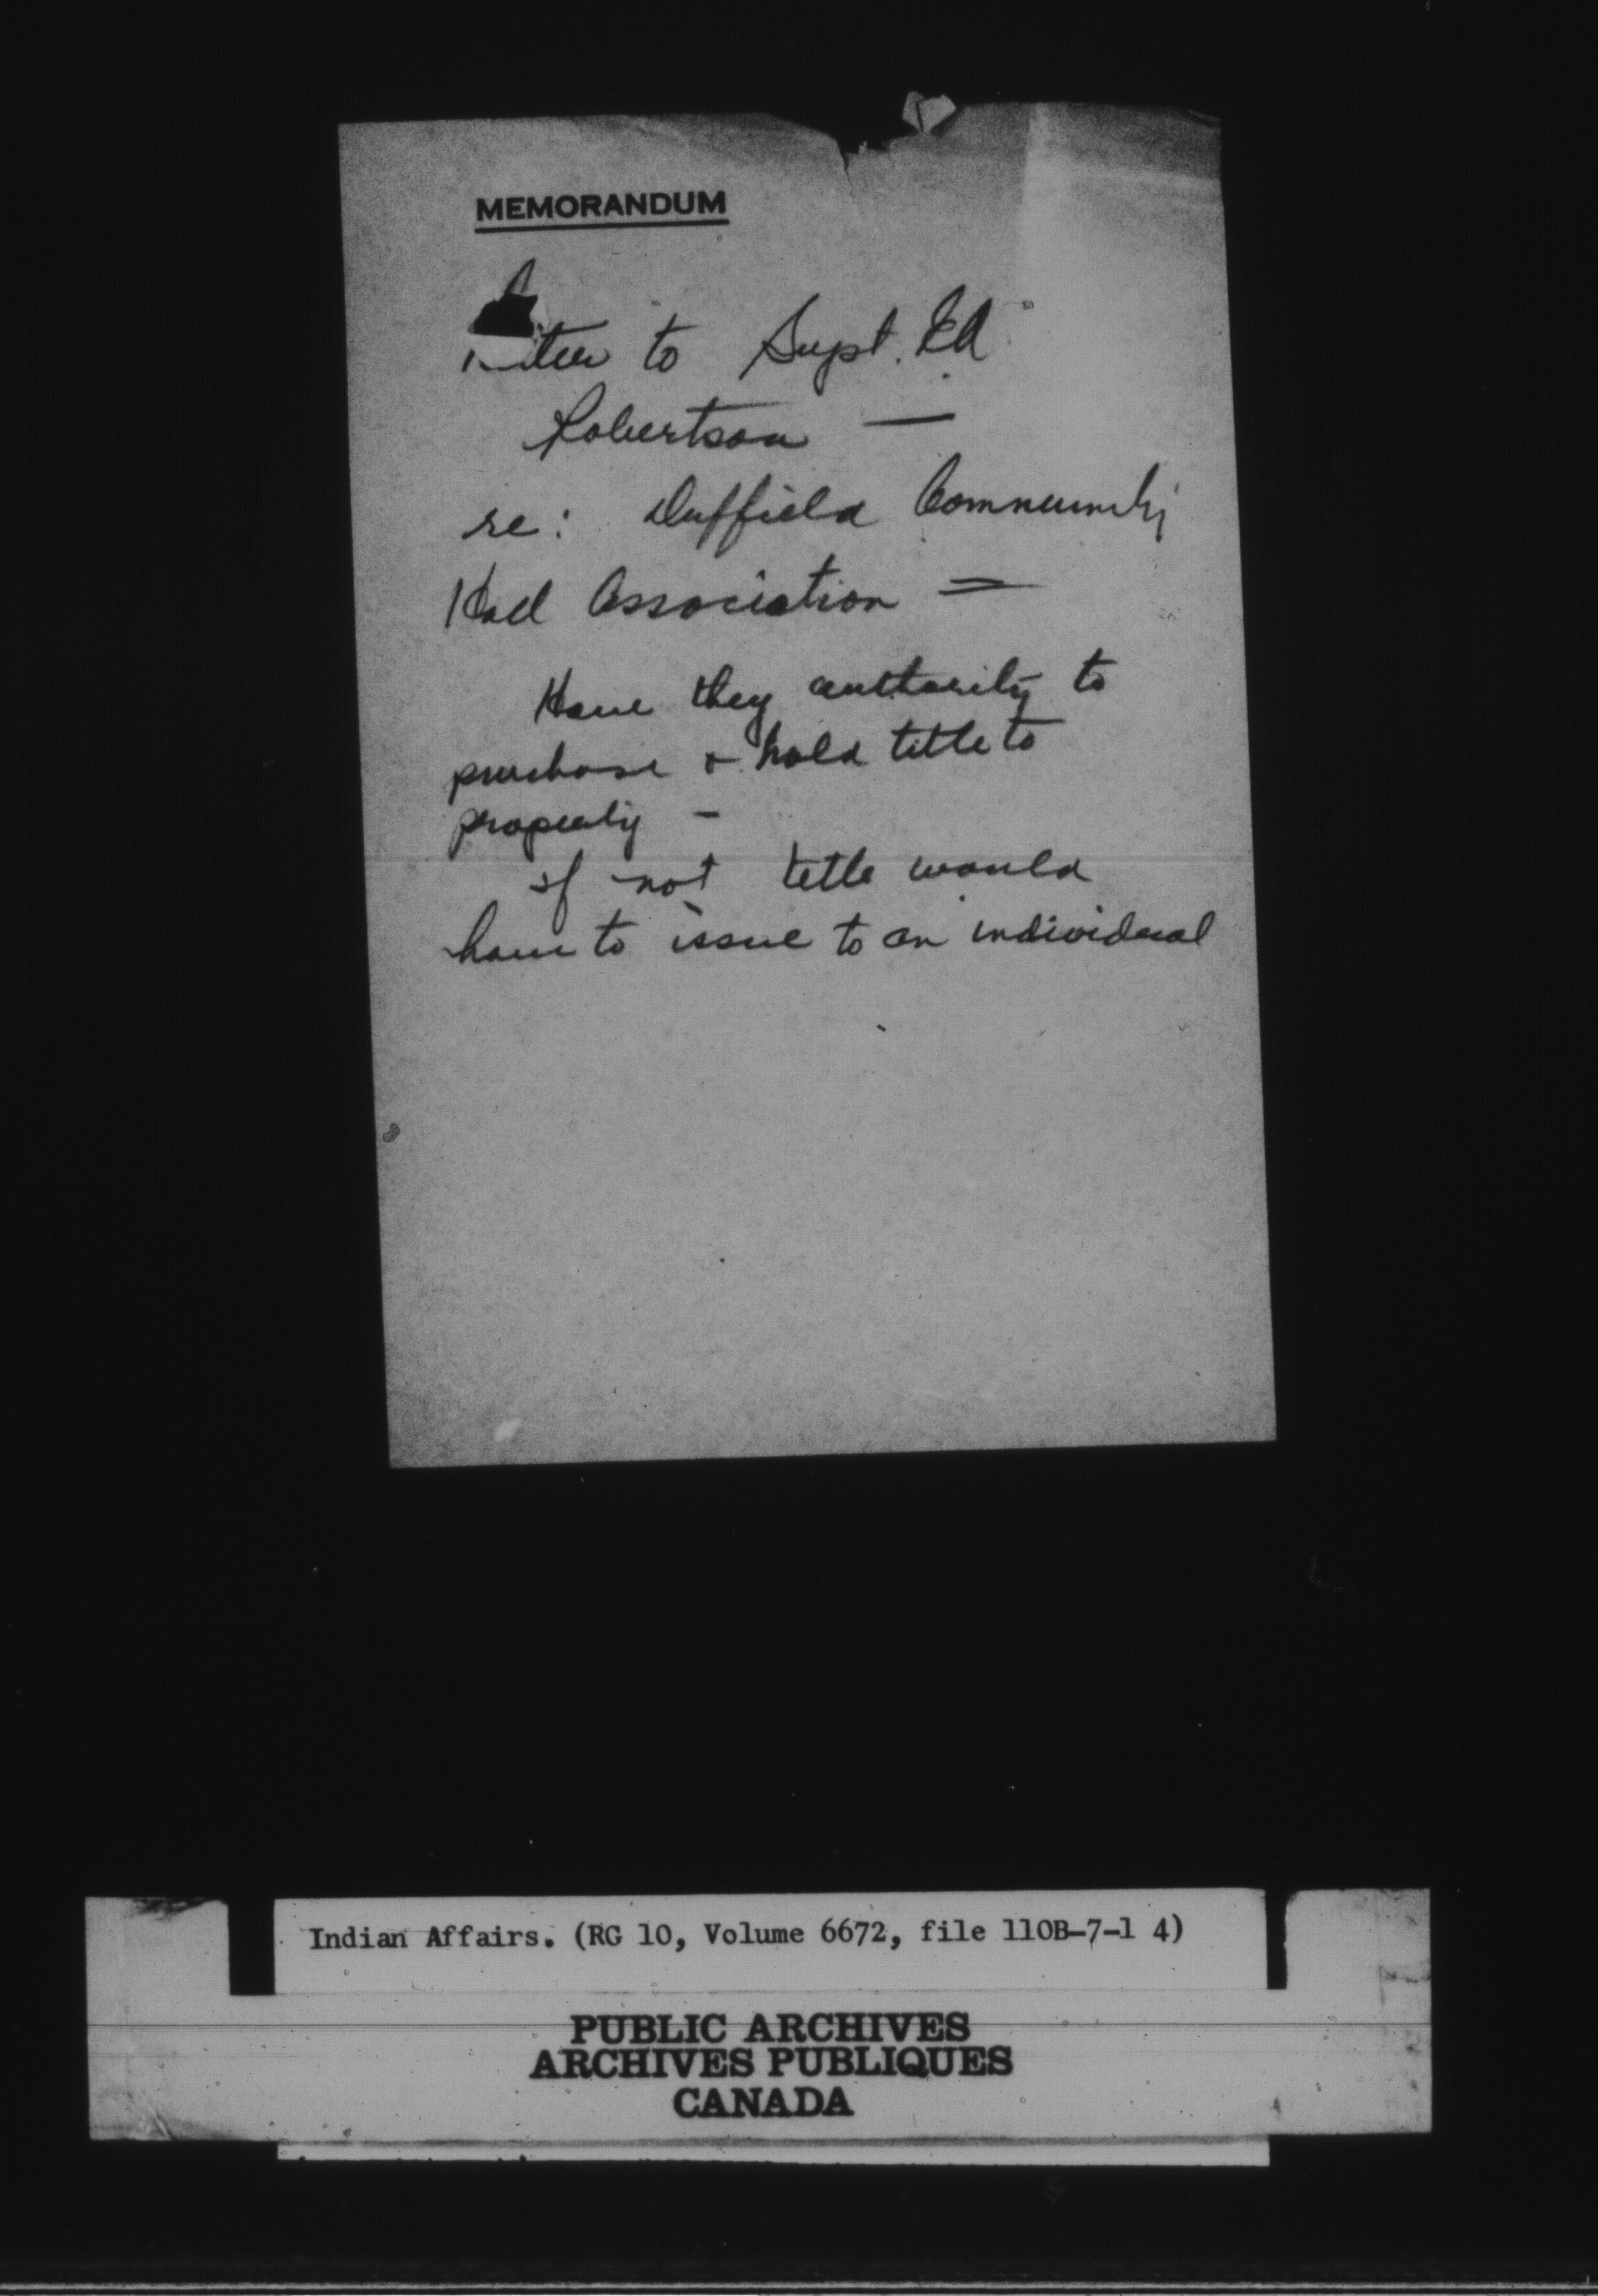 MEMORANDUM
to Supt. Ed
Robertson —
re: Duffield Community
Hall Association =
Have they authority to
purchase & hold title to
property -
if not title would
have to issue to an individual
Indian Affairs. (RG 10, Volume 6672, file 110B-7-1 4)
PUBLIC ARCHIVES
ARCHIVES PUBLIQUES
CANADA